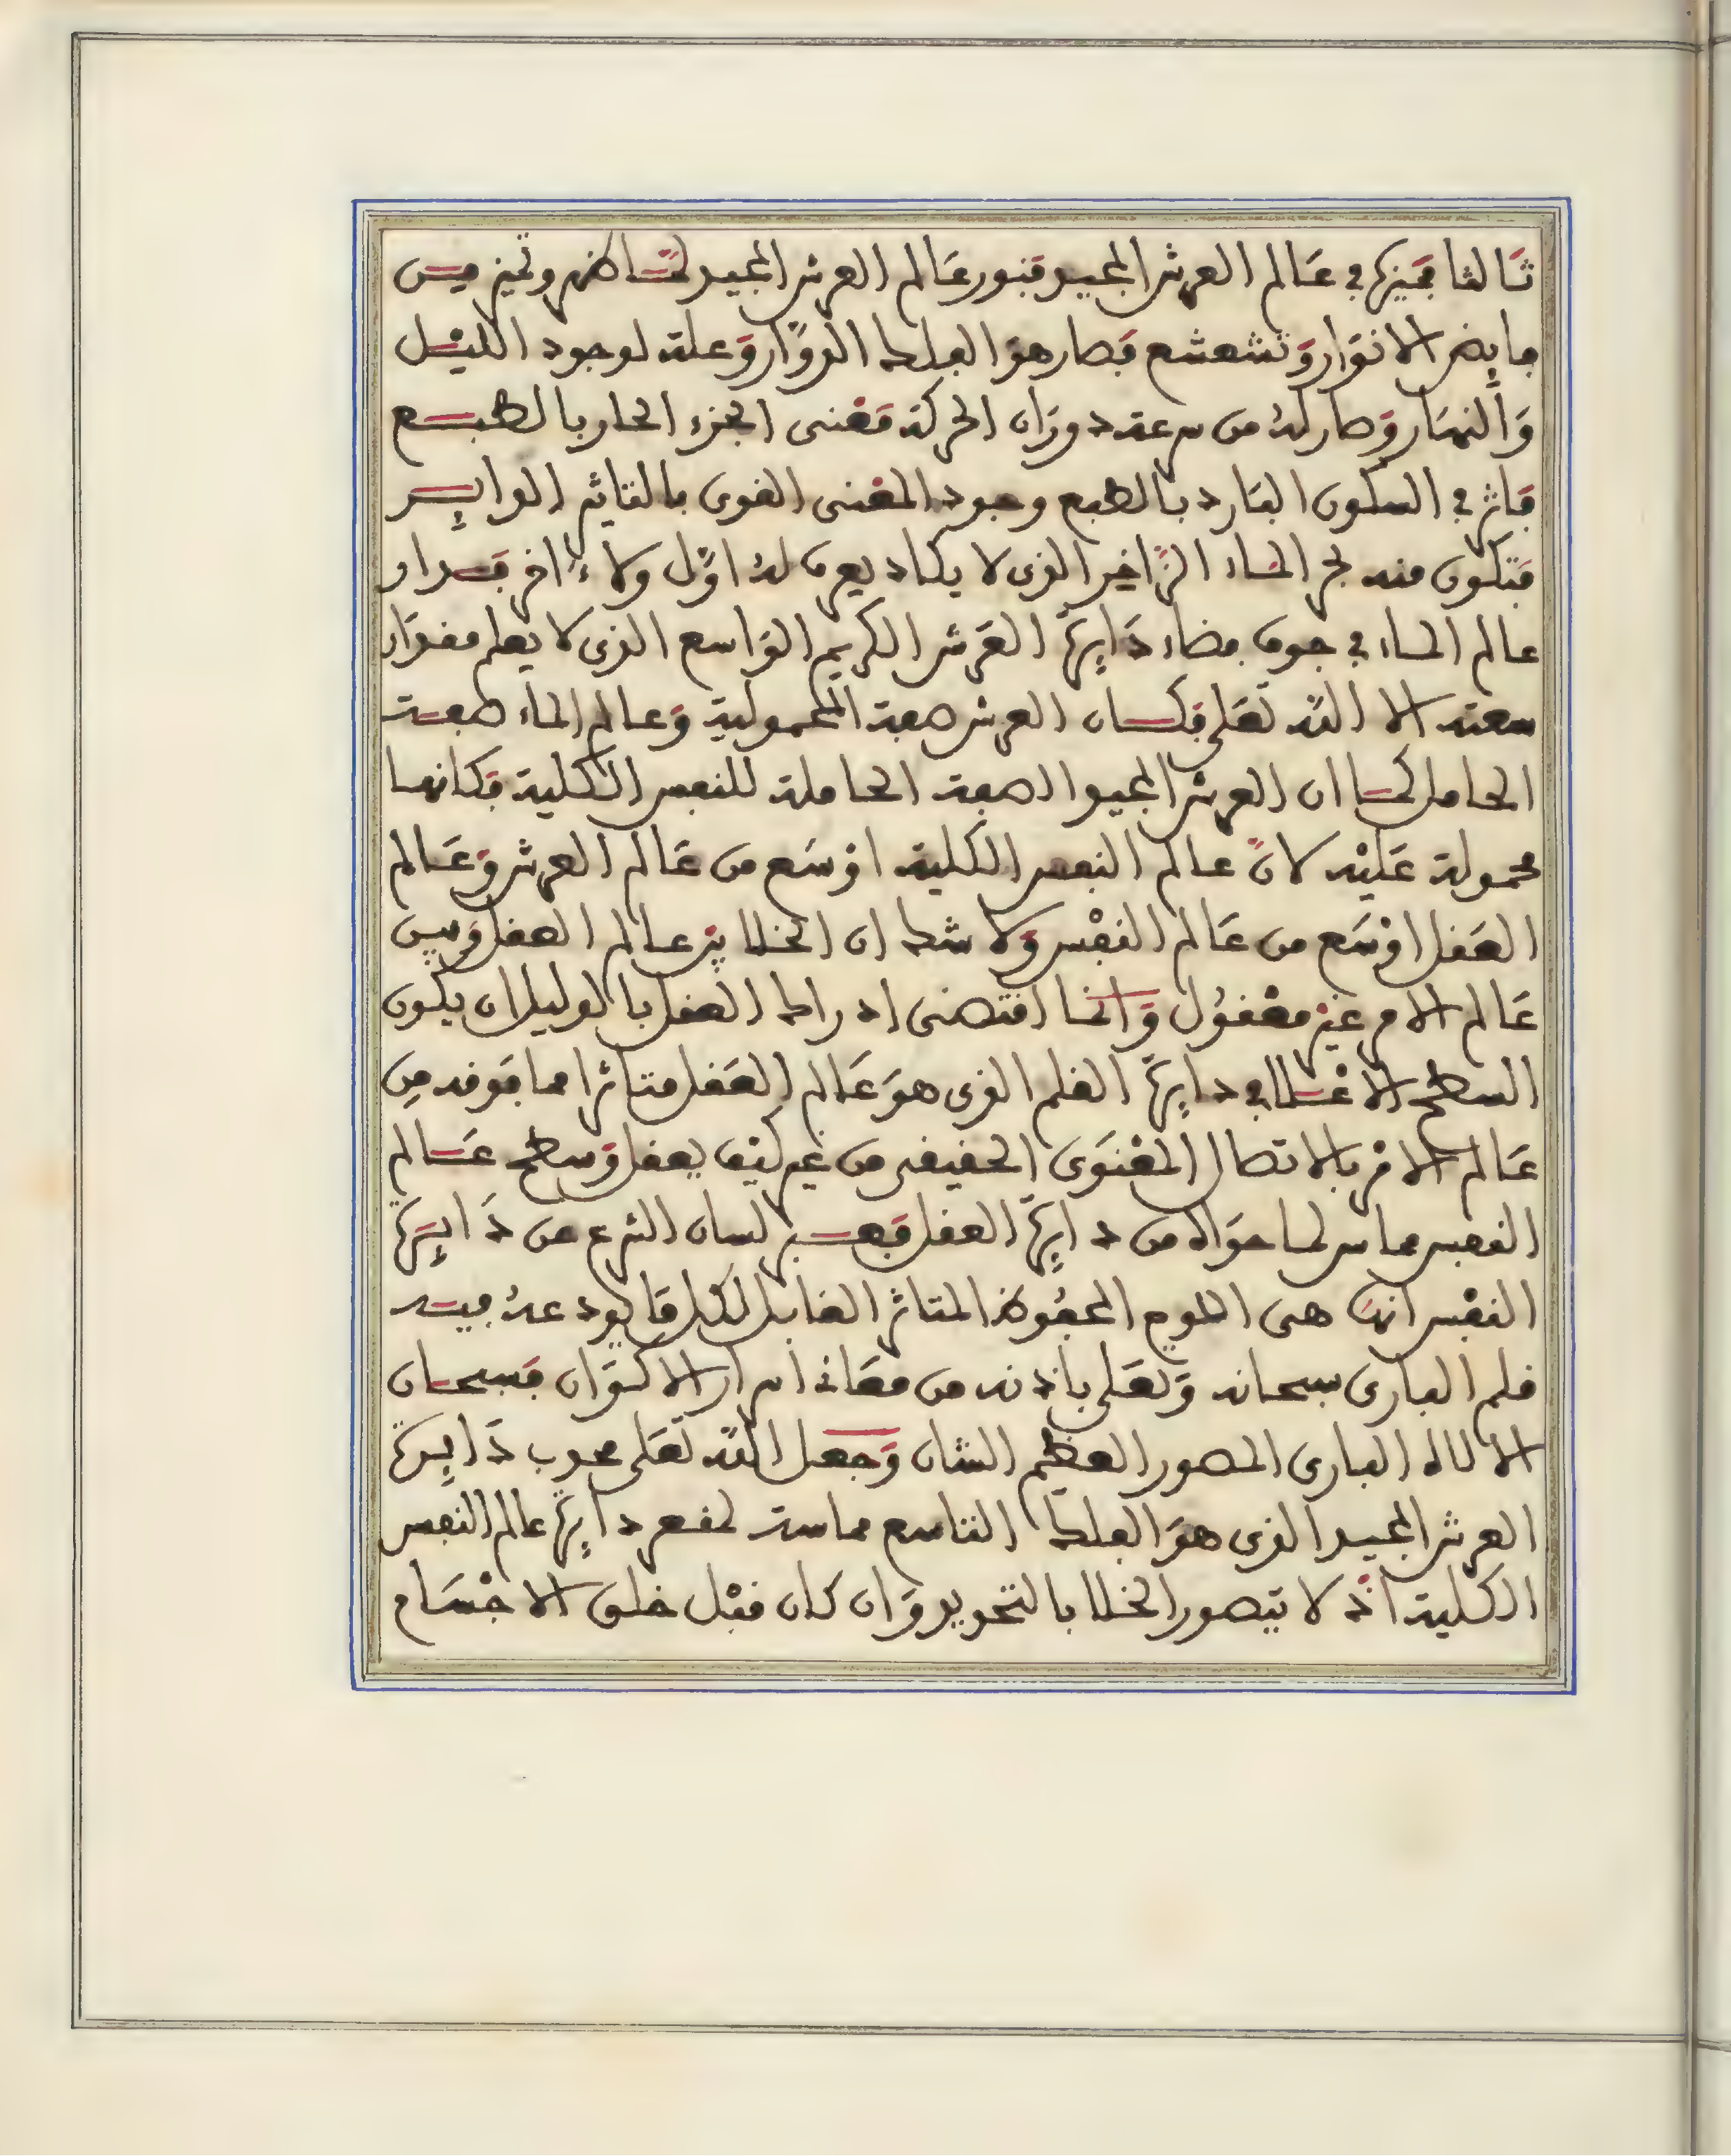 ثالثا فميزها في عالم العرش المجيد فبنور عالم العرش المجيد لما ظهر وتميز من
فايض الانوار وتشعشع فصار هو الفلك الدوار وعلة لوجود الليل
والنهار وصار له من سرعة دوران الحركة معنى الجزء الحار بالطبع
فاثر في السكون البارد بالطبع وجود المعنى القوى بالتاثير الداير
فتكون منه بحر الماء الزاخر الذى لا يكاد يعرف له اول ولا ءاخر فدار
عالم الماء في جوف فضاء دايرة العرش الكريم الواسع الذى لا يعلم مقدار
سعته الا الله تعلى فكان العرش صفة المحمولية وعالم الماء صفة
الحامل كما ان العرش المجيد الصفة الحاملة للنفس الكلية فكانها
محمولة عليه لان عالم النفس الكلية اوسع من عالم العرش وعالم
العقل اوسع من عالم النفس ولا شك ان الخلا بين عالم العقل وبين
عالم الامر غير معقول وانما اقتضى ادراك العقل بالدليل ان يكون
السطح الاعلا في دايرة القلم الذى هو عالم العقل متاثرا مما فوقه من
عالم الامر بالاتصال المعنوى الحقيقى من غير كيف يعقل وسطح عالم
النفس مماس لما حواه من دايرة العقل فعبر لسان الشرع عن دايرة
النفس انها هى اللوح المحفوظ المتاثر القابل لكل ما يودعه فيه
قلم البارى سبحانه وتعلى باذنه من معاني اسرار الاكوان فسبحان
الالاه البارى المصور العظيم الشان وجعل الله تعلى محدب دايرة
العرش المجيد الذى هو الفلك التاسع مماسة لمقعر دايرة عالم النفس
الكلية اذ لا يتصور الخلا بالتحديد وان كان قبل خلق الاجسام